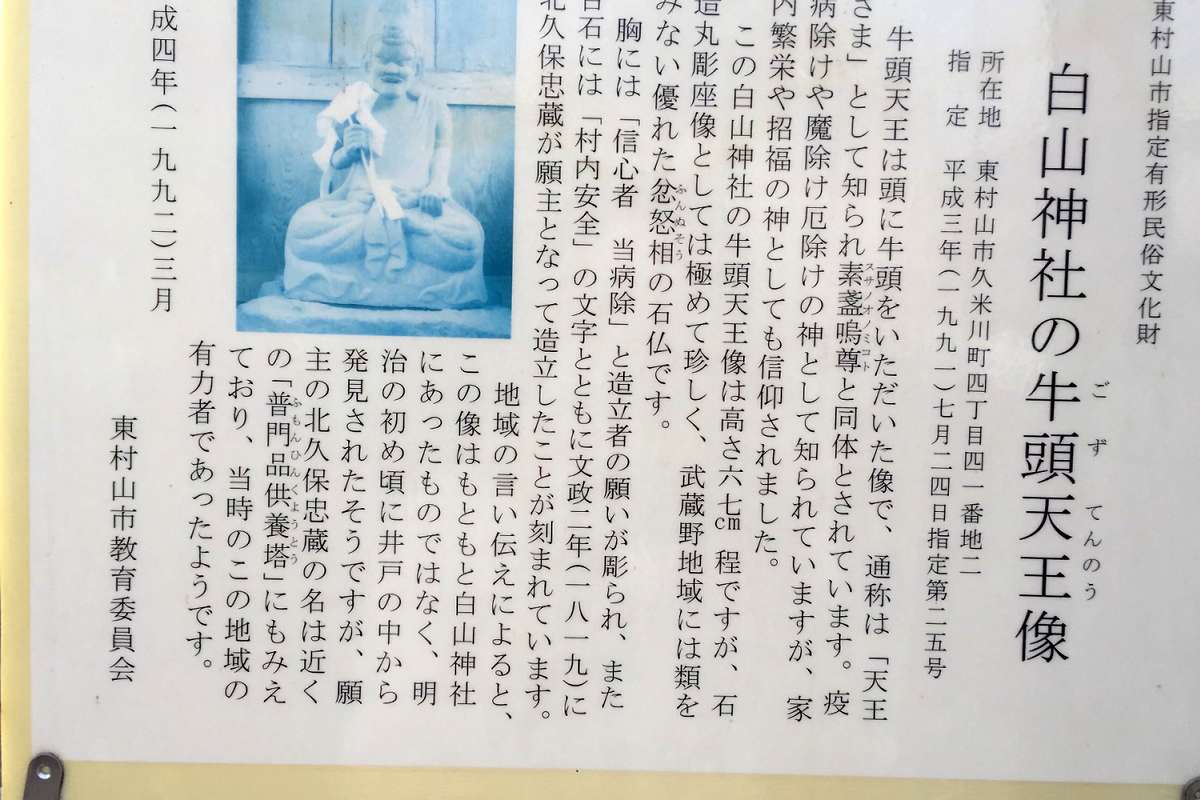 東村山市指定有形民俗文化財
白山神社の牛頭天王像
ごずてんのう
所在地　東村山市久米川町四丁目四一番地二
指　定　平成三年(一九九一)七月二四日指定第二五号
牛頭天王は頭に牛頭をいただいた像で、通称は「天王
さま」として知られ素盞嗚尊と同体とされています。疫
スサノオノミコト
病除けや魔除け厄除けの神として知られていますが、家
内繁栄や招福の神としても信仰されました。
この白山神社の牛頭天王像は高さ六七㎝程ですが、石
造丸彫座像としては極めて珍しく、武蔵野地域には類を
みない優れた忿怒相の石仏です。
ふんぬそう
胸には「信心者　当病除」と造立者の願いが彫られ、また
台石には「村内安全」の文字とともに文政二年(一八一九)に
北久保忠蔵が願主となって造立したことが刻まれています。
地域の言い伝えによると、
この像はもともと白山神社
にあったものではなく、明
治の初め頃に井戸の中から
発見されたそうですが、願
主の北久保忠蔵の名は近く
の「普門品供養塔」にもみえ
ふもんひんくようとう
ており、当時のこの地域の
有力者であったようです。
成四年(一九九二)三月
東村山市教育委員会